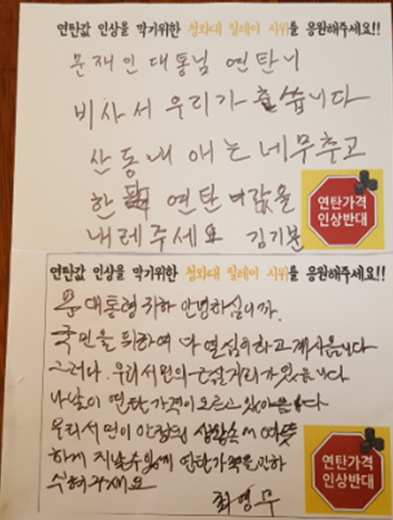 연탄값 인상을 막기위한 청와대 릴레이 시위를 응원해주세요!!
문재인대통님 연탄니
비사서 우리가 습니다
산동내애는 네무춥고
한 연탄 값을
내레주세요 김기분
연탄가격
인상반대
연탄값 인상을 막기위한 청와대 릴레이 시위를 응원해주세요!!
문 대통령 귀하 안녕하십니까.
국민을 위하여 하고 계시옵니다
그러나. 우리서민의 근심거리가 있습니다
나날이 연탄가격이 오르고
우리서민이 안정된 에서 따뜻
하게 지낼수있게 연탄가격을 인하
주세요
최영무
연탄가격
인상반대